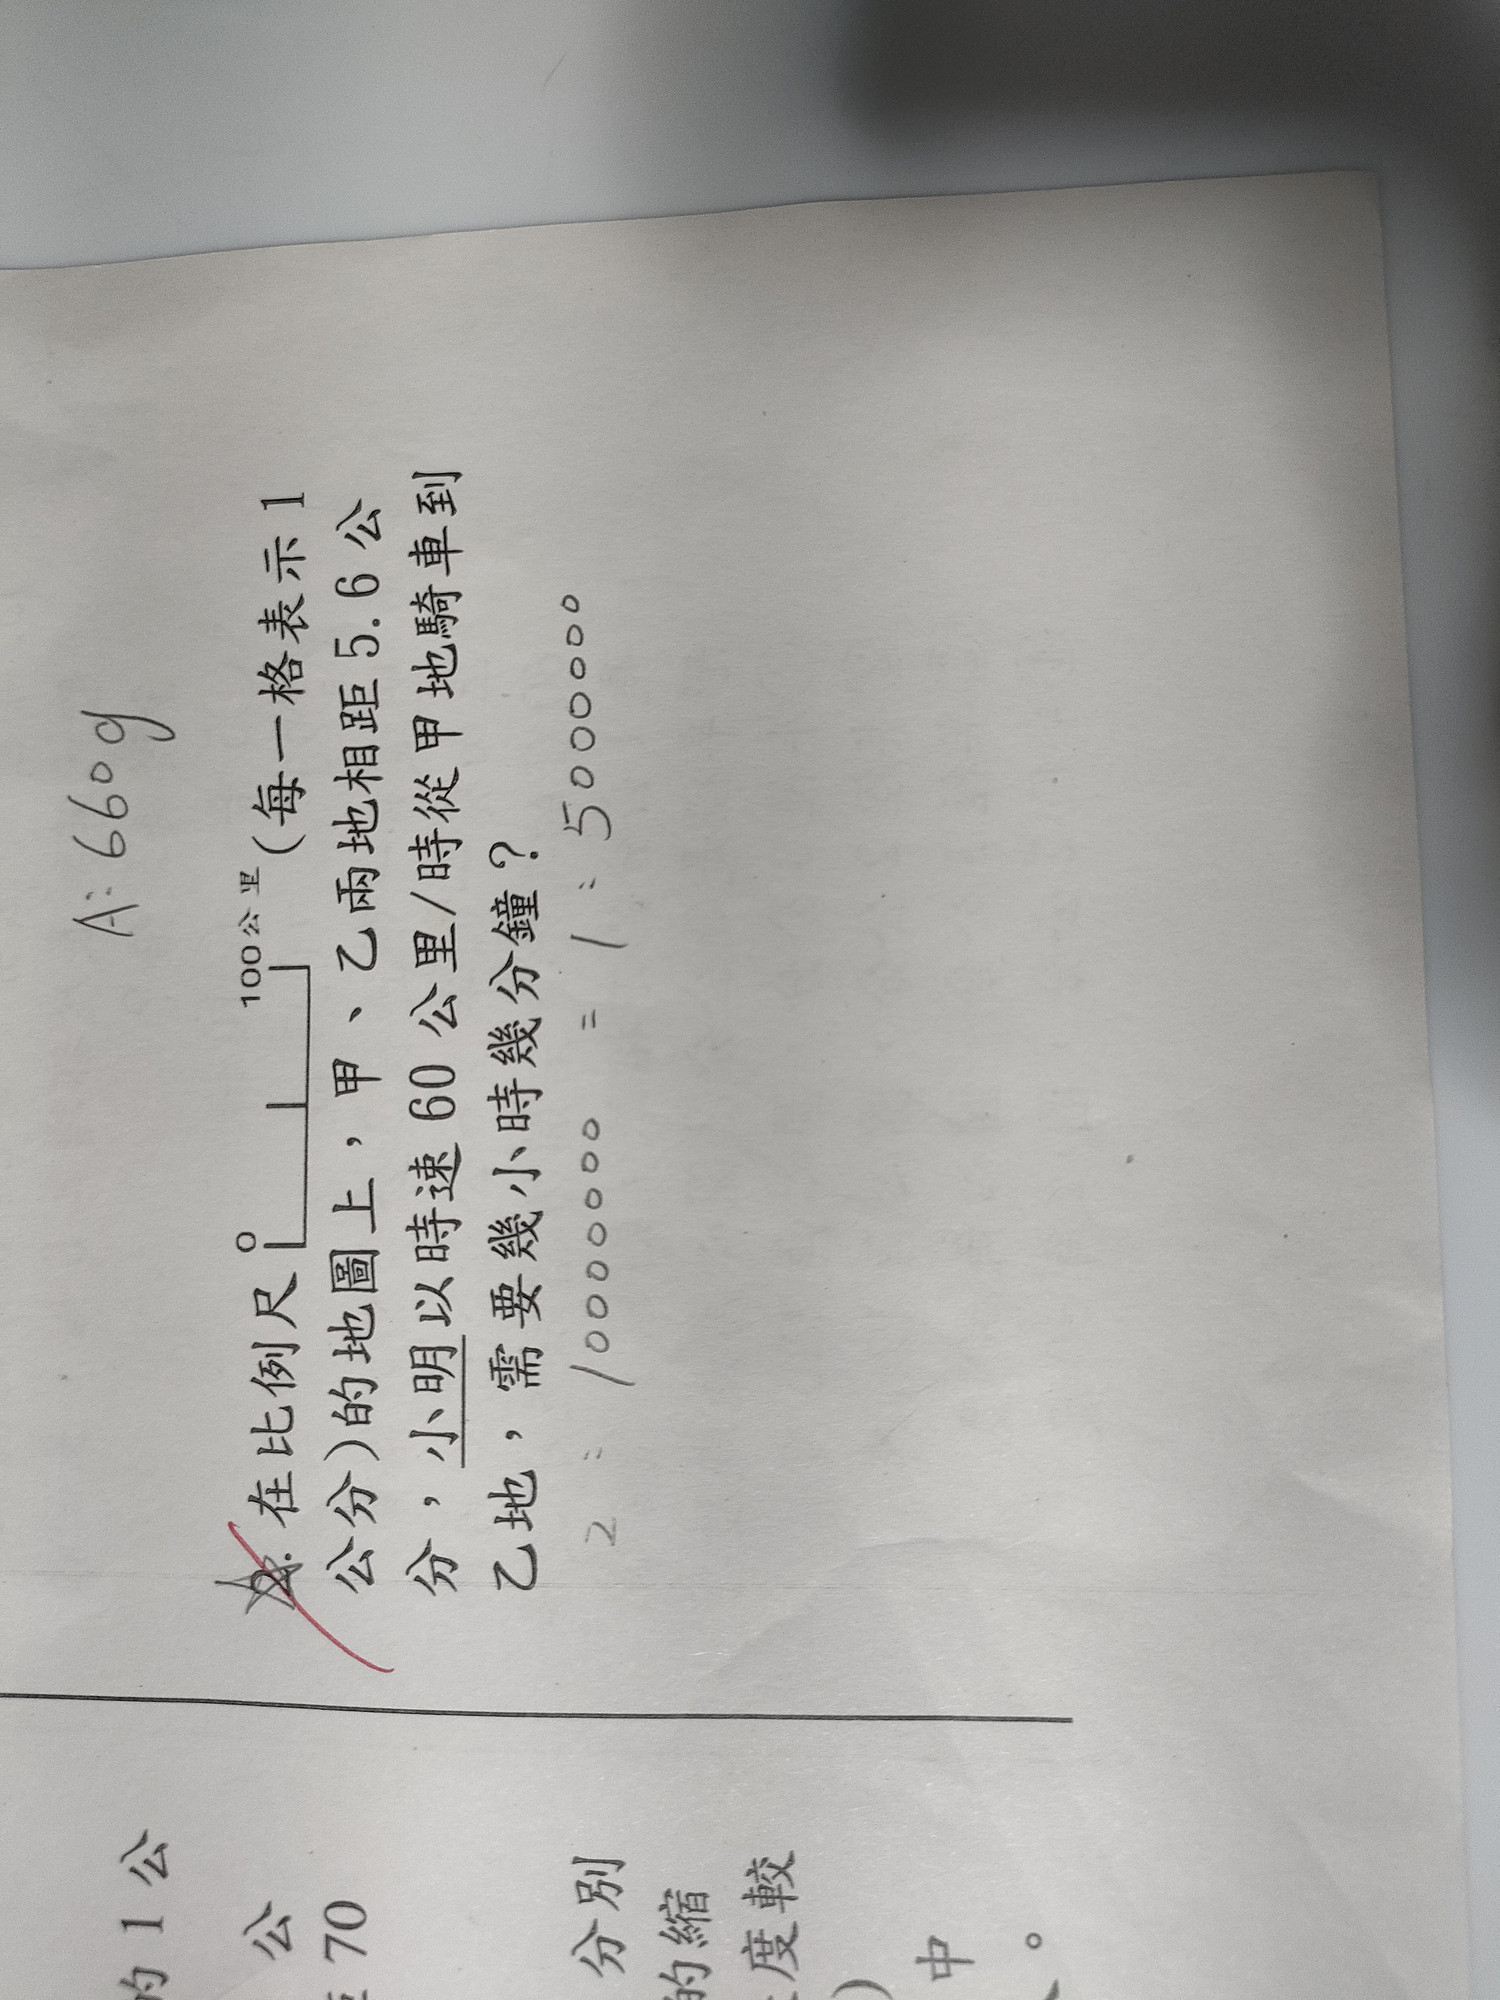 A:660g
2. 在比例尺 0 100公里 (每一格表示 1
公分)的地圖上，甲、乙兩地相距 5.6 公
分，小明以時速 60 公里/時從甲地騎車到
乙地，需要幾小時幾分鐘？
2 : 10000000 = 1 : 5000000
的 1 公
公
70
分別
的縮
度較
)
中
。